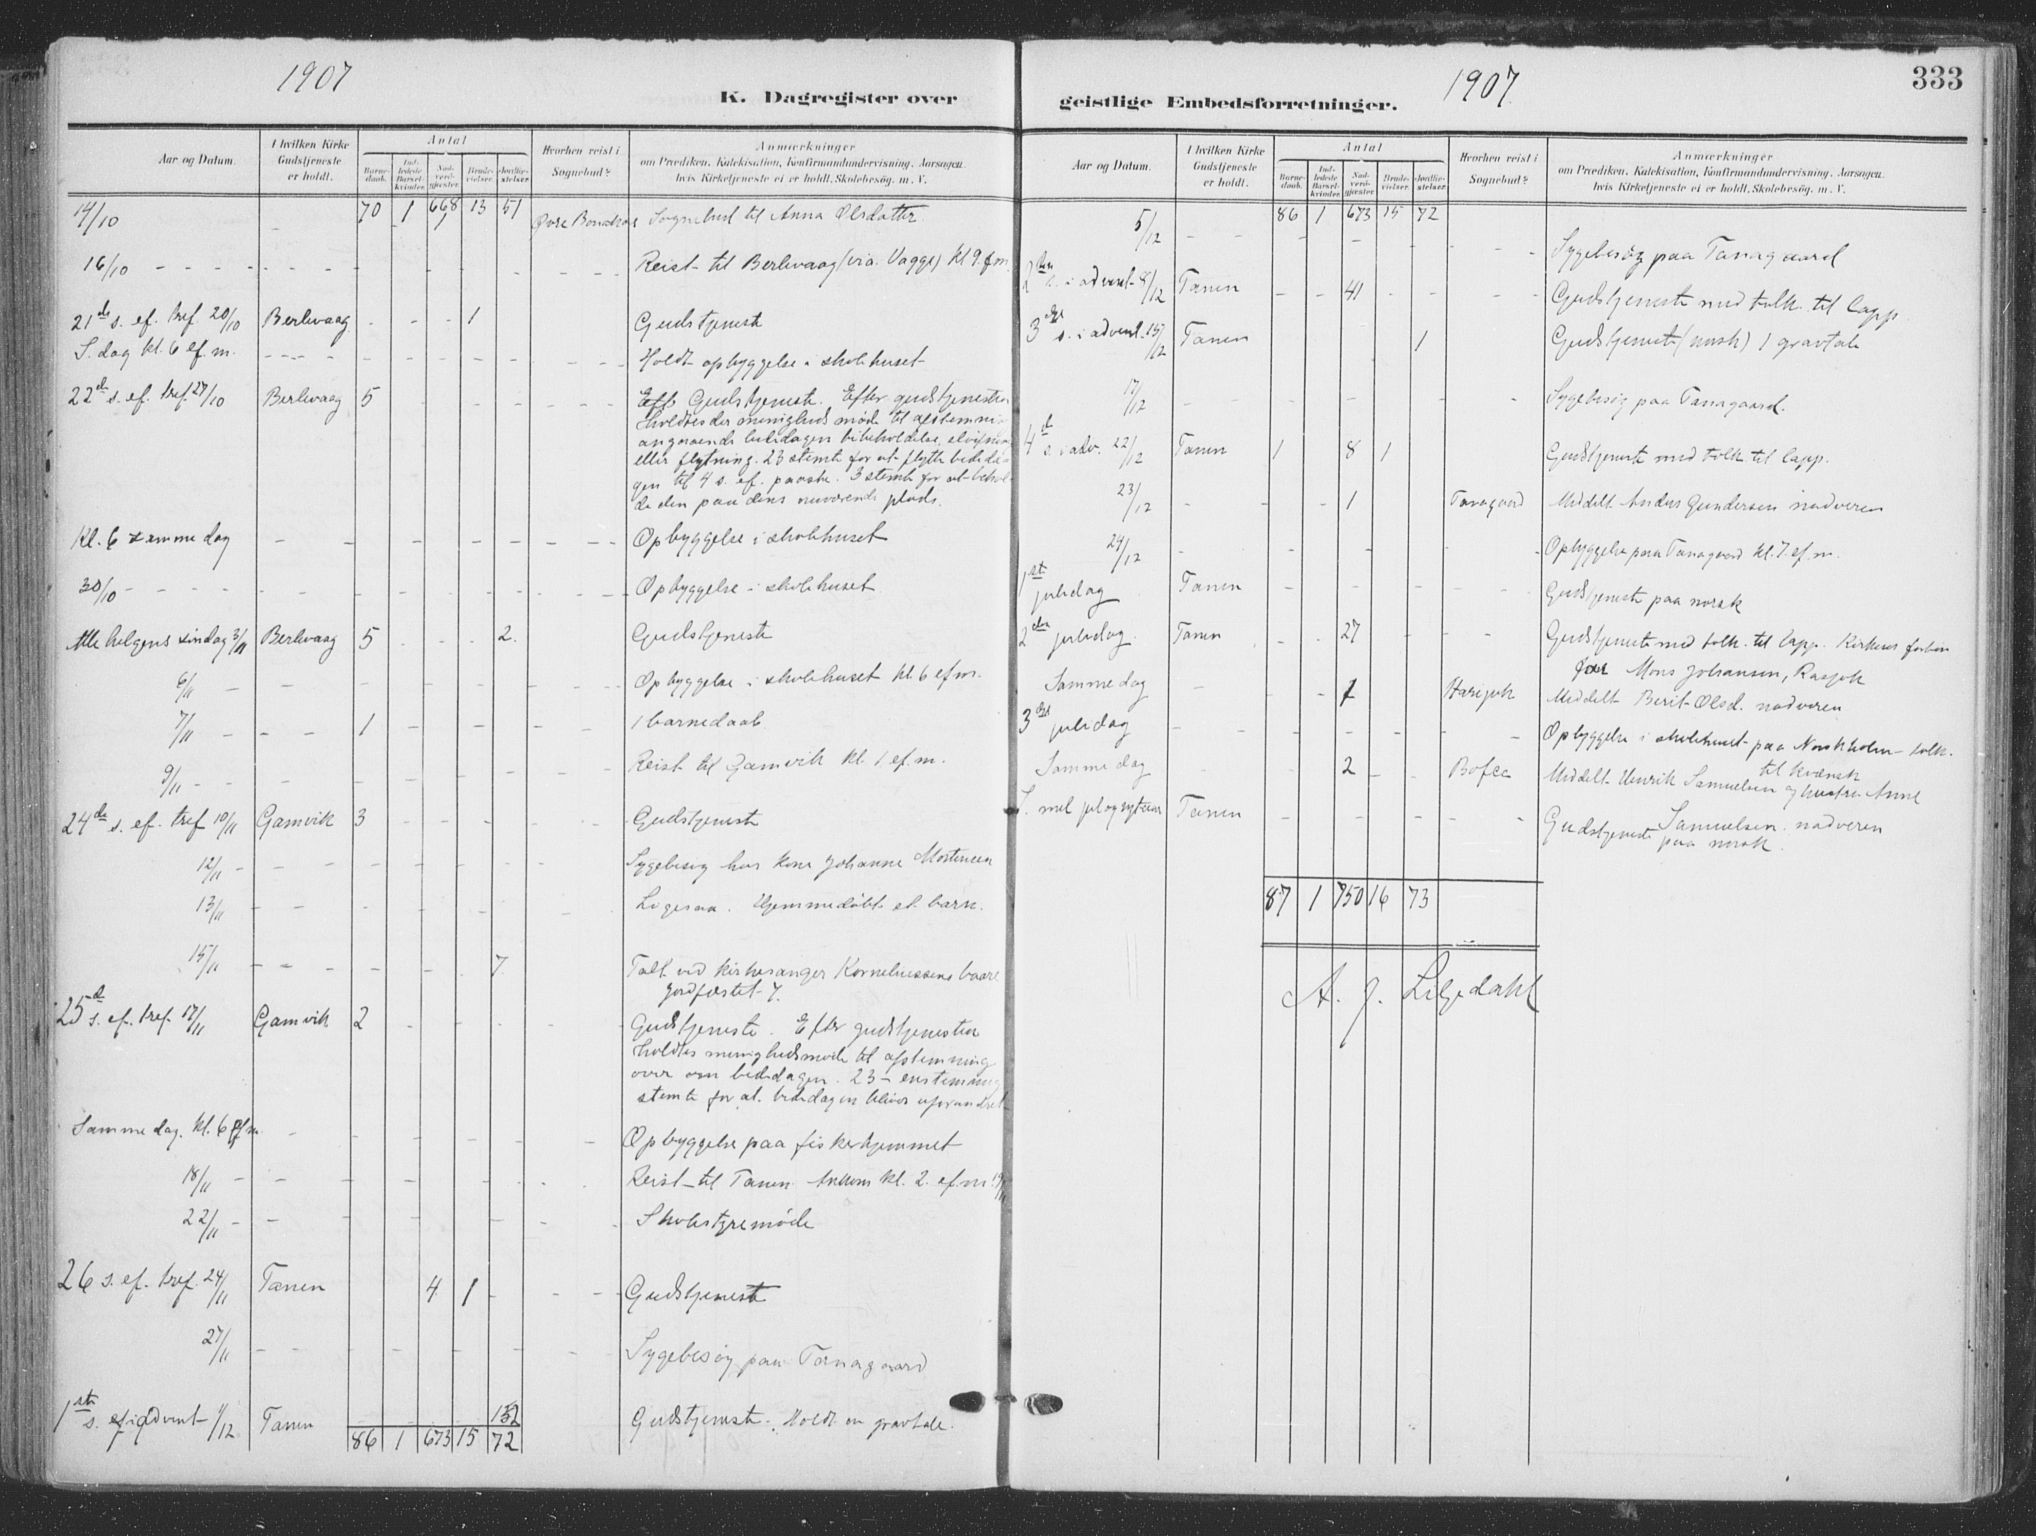 1907
K. Dagregister over
Aar og Datum.
I hvilken Kirke Gudstjeneste er holdt.
Antal
Barnedaab.
Indledede Barselkvinder.
Nadverdgjester.
Brudevielser.
Jordfæstelser.
Hvorhen reist i Sognebud?
Anmærkninger
om Prædiken, Katekisation, Konfirmandundervisning, Aarsagen,
hvis Kirketjeneste ei er holdt, Skolebesøg, m. V.
14/10 70 1 668 13 51 Sognebud til Anna Olsdatter
1
16/10 Reist til Berlevaag (via Vagge) kl 9 f.m.
21de s. ef. tref. 20/10 Berlevaag 1 Gudstjeneste
S. dag kl. 6 ef. m. Holdt opbyggelse i skolehuset
22de s. ef. tref. 27/10 Berlevaag 5 Eft Gudstjeneste. Efter gudstjenesten
holdtes der menigheds møde til afstemni-
angaaende bededagen bibeholdelse,
eller flytning. 23 stemte for at flytte bededa-
gen til 4 s. ef. paaske. 3 stemte for at behol-
de den paa dens nuværende plads.
Kl. 6 samme dag Opbyggelse i skolehuset
30/10 Opbyggelse i skolehuset
Alle helgens søndag 3/11 Berlevaag 5 2. Gudstjeneste
6/11 Opbyggelse i skolehuset kl. 6 ef.m.
7/11 1 1 barnedaab
9/11 Reist til Gamvik kl. 1 ef. m.
24de s. ef. tref 10/11 Gamvik 3 Gudstjeneste
12/11 Sygebesøg hos kone Johanne Mortensen
13/11 Ligesaa. Hjemmedøbt et barn.
15/11 7 Talt ved kirkesanger Korneliussens baare
Jordfæstet 7.
25de s. ef. tref. 17/11 Gamvik 2 Gudstjeneste. Efter gudstjenesten
holdtes menighedsmøde til afstemning
over om bededagen. 23 – enstemmig
stemte for at bededagen bliver uforandret
Samme dag. kl. 6 ef m. Opbyggelse paa fiskerhjemmet
18/11 Reist til Tanen Ankom kl. 2. ef.m. 19/11
22/11 Skolestyremøde
26 s. ef. tref. 24/11 Tanen 4 1 Gudstjeneste
27/11 Sygebesøg paa Tanagaard
1ste s. i advent 1/12 Tanen 12 Gudstjeneste. Holdt en gravtale.
86 1 673 15 72
1907
333
geistlige Embedsforretninger.
Aar og Datum.
I hvilken Kirke Gudstjeneste er holdt.
Antal
Barnedaab.
Indledede Barselkvinder.
Nadverdgjester.
Brudevielser.
Jordfæstelser.
Hvorhen reist i Sognebud?
Anmærkninger
om Prædiken, Katekisation, Konfirmandundervisning, Aarsagen,
hvis Kirketjeneste ei er holdt, Skolebesøg, m. V.
86 1 673 15 72
5/12 Sygebesøg paa Tanagaard
2den s. i advent 8/12 Tanen 41 Gudstjeneste med tolk. til lapp.
3die s. i advent. 15/12 Tanen 1 Gudstjeneste (norsk) 1 gravtale
17/12 Sygebesøg paa Tanagaard.
4de s. i adv. 22/12 Tanen 1 8 1 Gudstjeneste med tolk. til lapp.
23/12 1 Tanagaard Meddelt Anders Gundersen nadveren
24/12 Opbyggelse paa Tanagaard kl. 7. ef. m.
1ste juledag Tanen Gudstjeneste paa norsk
2den juledag. Tanen 27 Gudstjeneste med tolk. til lapp.
for Mons Johansen, Rasjok
Samme dag 1 Harrejok Meddelt Berit Olsd. nadveren
3die juledag Opbyggelse i skolehuset paa Norskholm – tolk.
til kvænsk
Samme dag 2 Meddelt Henrik Samuelsen og hustru Anne
Samuelsen nadveren
S. mel jul og nytaar Tanen Gudstjeneste
paa norsk.
87 1 750 16 73
A. J. Liljedahl